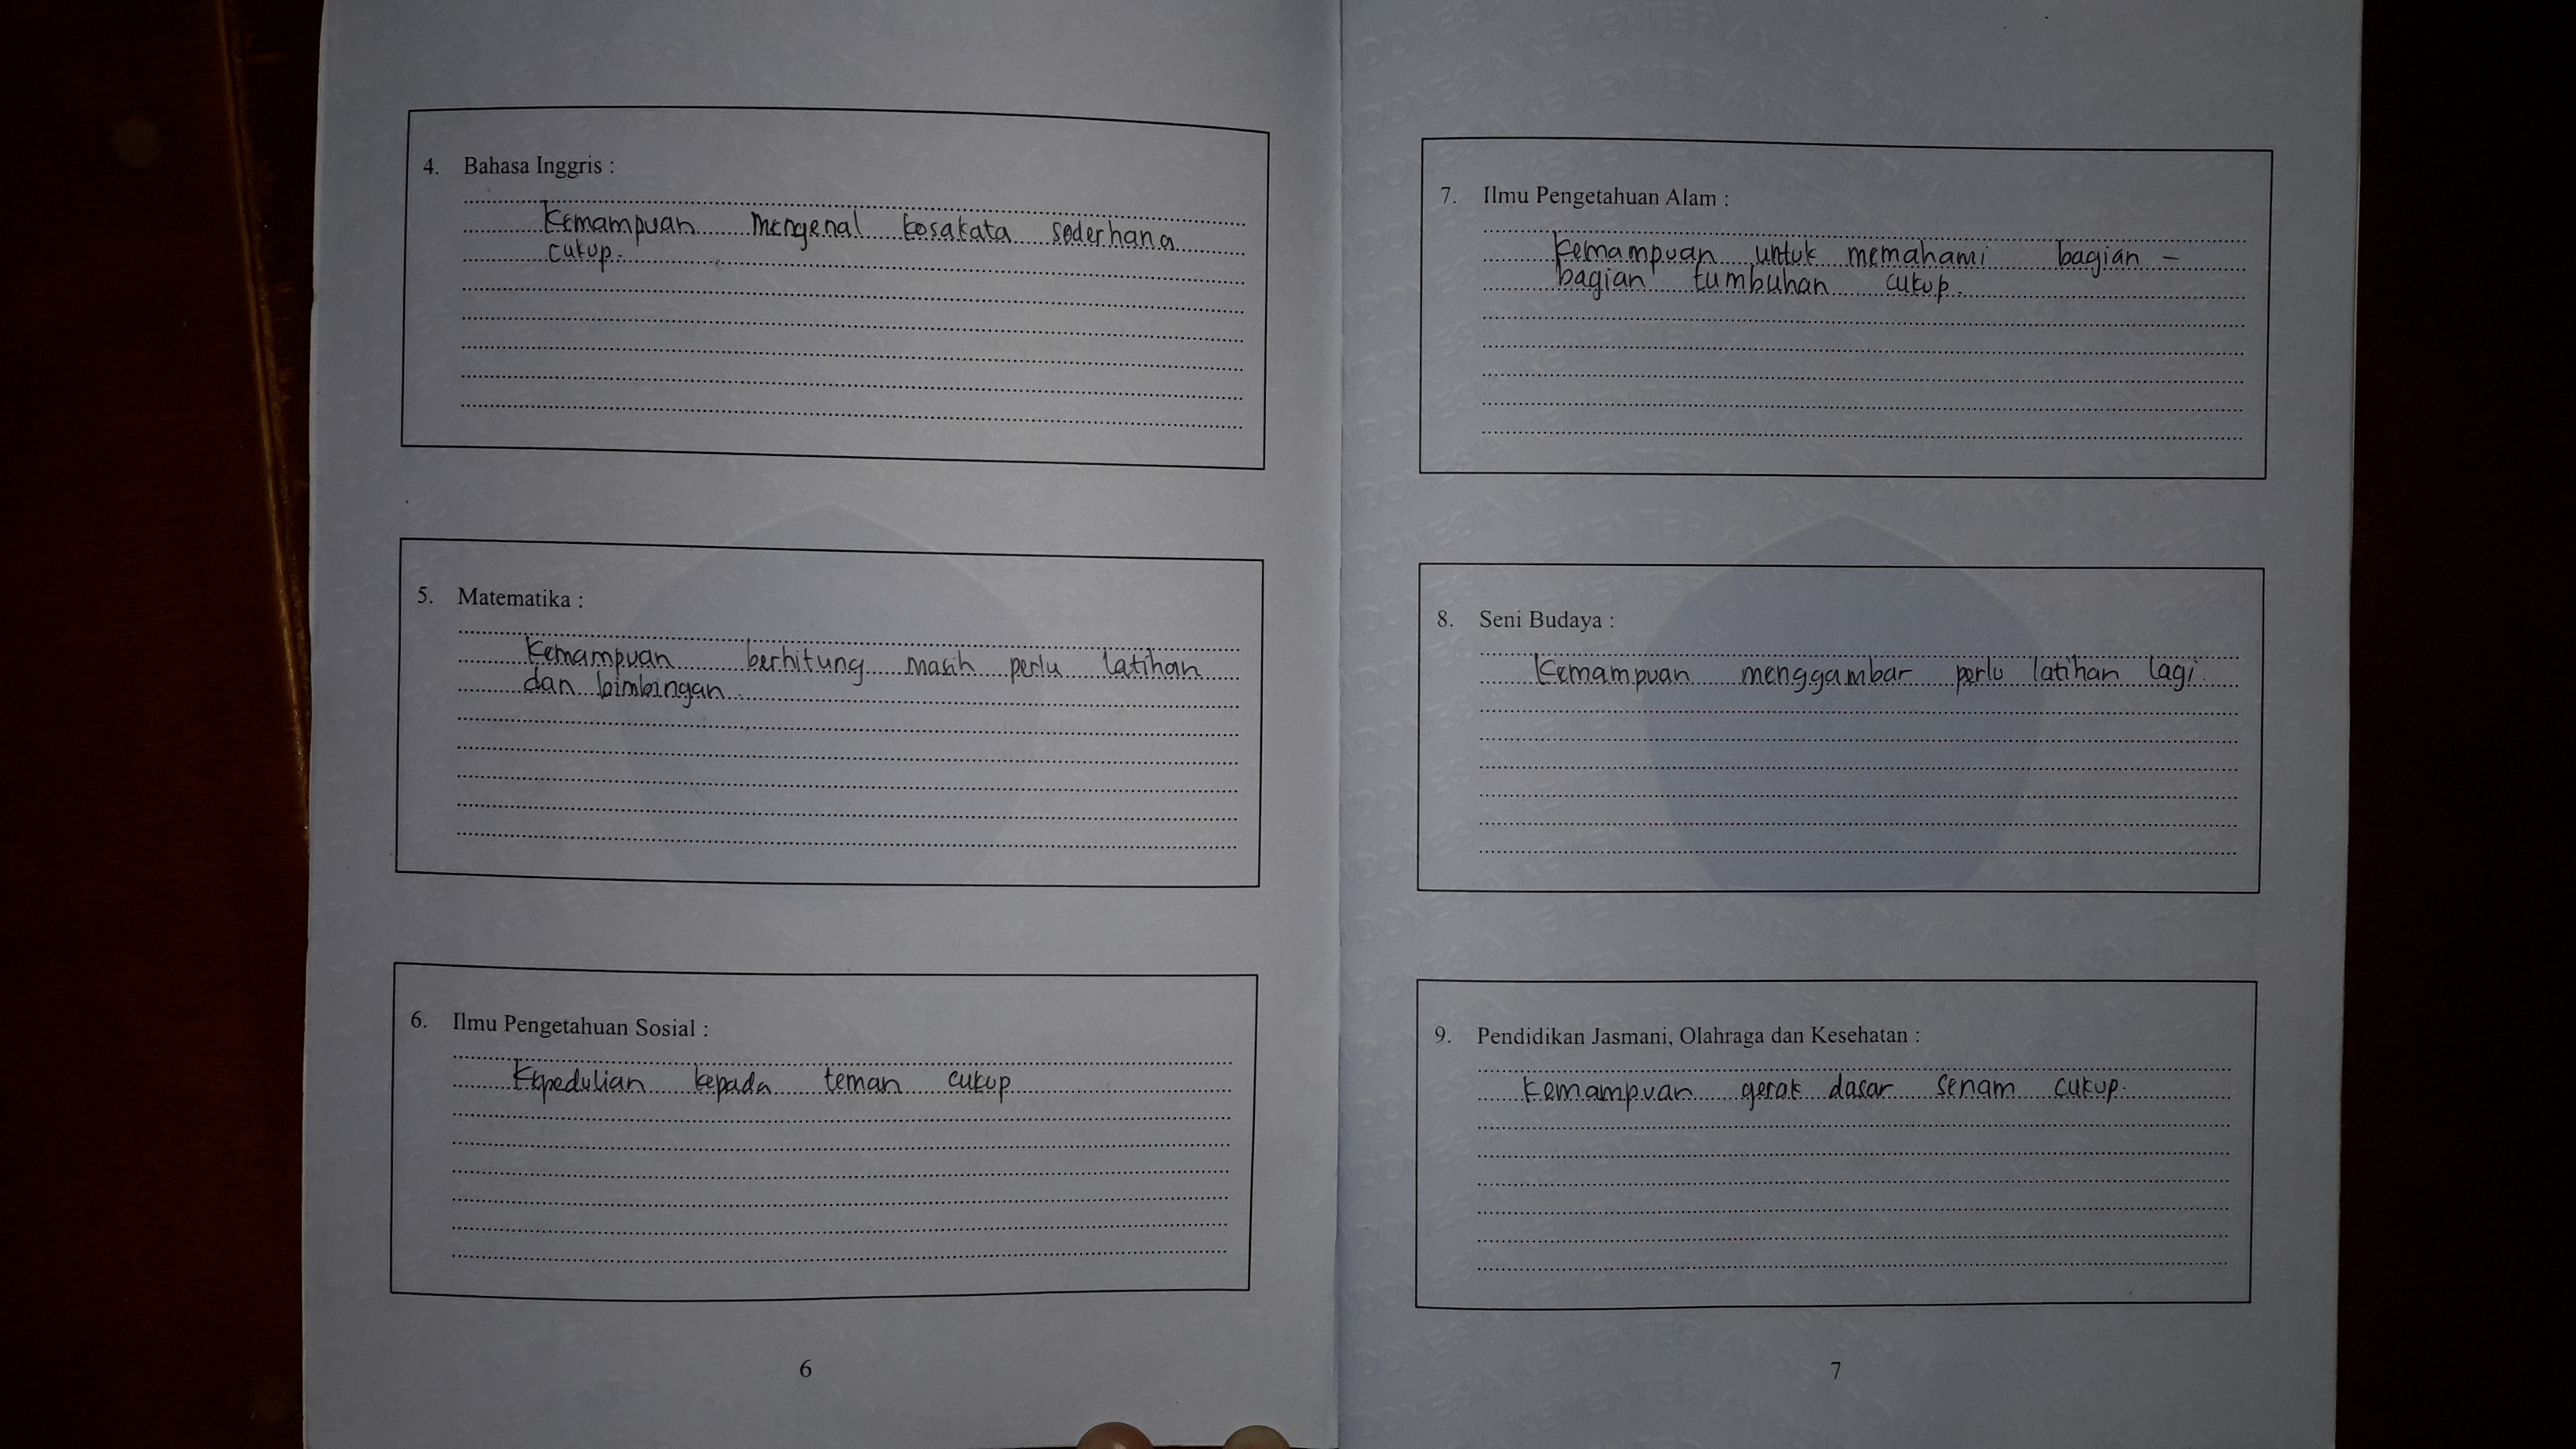 4. Bahasa Inggris :
Kemampuan mengenal kosakata sederhana
cukup.
5. Matematika :
Kemampuan berhitung masih perlu latihan
dan bimbingan.
6. Ilmu Pengetahuan Sosial :
Kepedulian kepada teman cukup
6
7. Ilmu Pengetahuan Alam :
Kemampuan untuk memahami bagian -
bagian tumbuhan cukup.
8. Seni Budaya :
Kemampuan menggambar perlu latihan lagi.
9. Pendidikan Jasmani, Olahraga dan Kesehatan :
Kemampuan gerak dasar senam cukup.
7